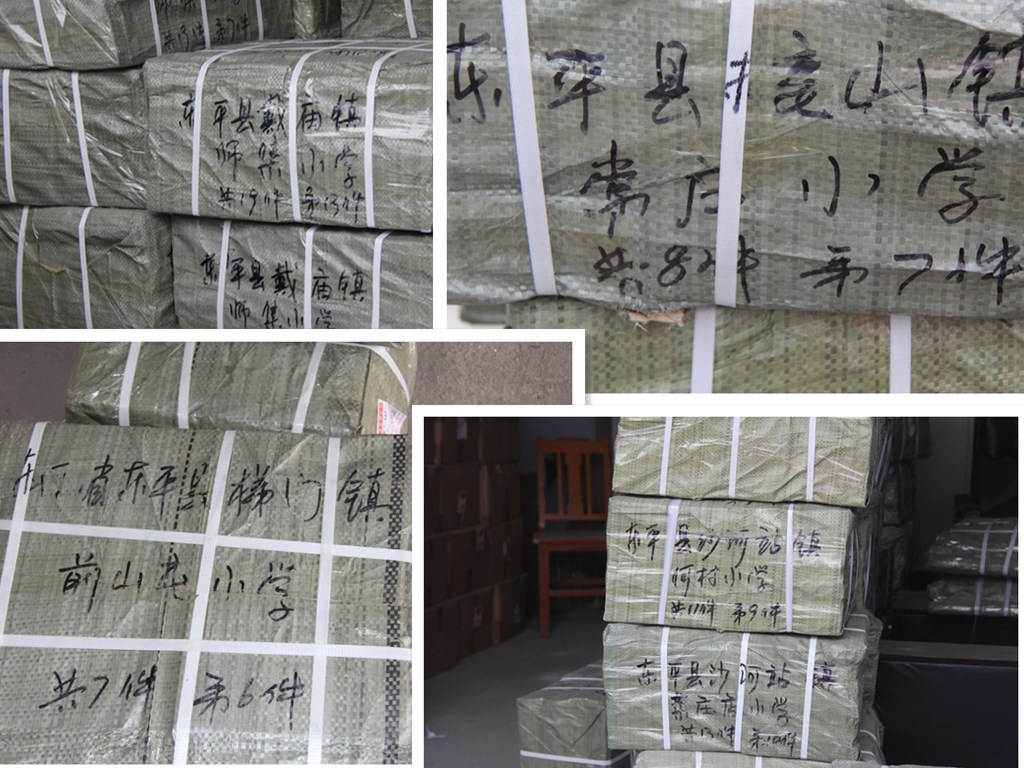 共13件 第7件
东平县戴庙镇
师集小学
共19件 第13件
东平县戴庙镇
师集小学
东平县接山镇
常庄小学
共8件 第7件
东平县梯门镇
前山屯小学
共7件 第6件
东平县沙河站镇
何村小学
共11件 第9件
东平县沙河站镇
小学
共13件 第10件